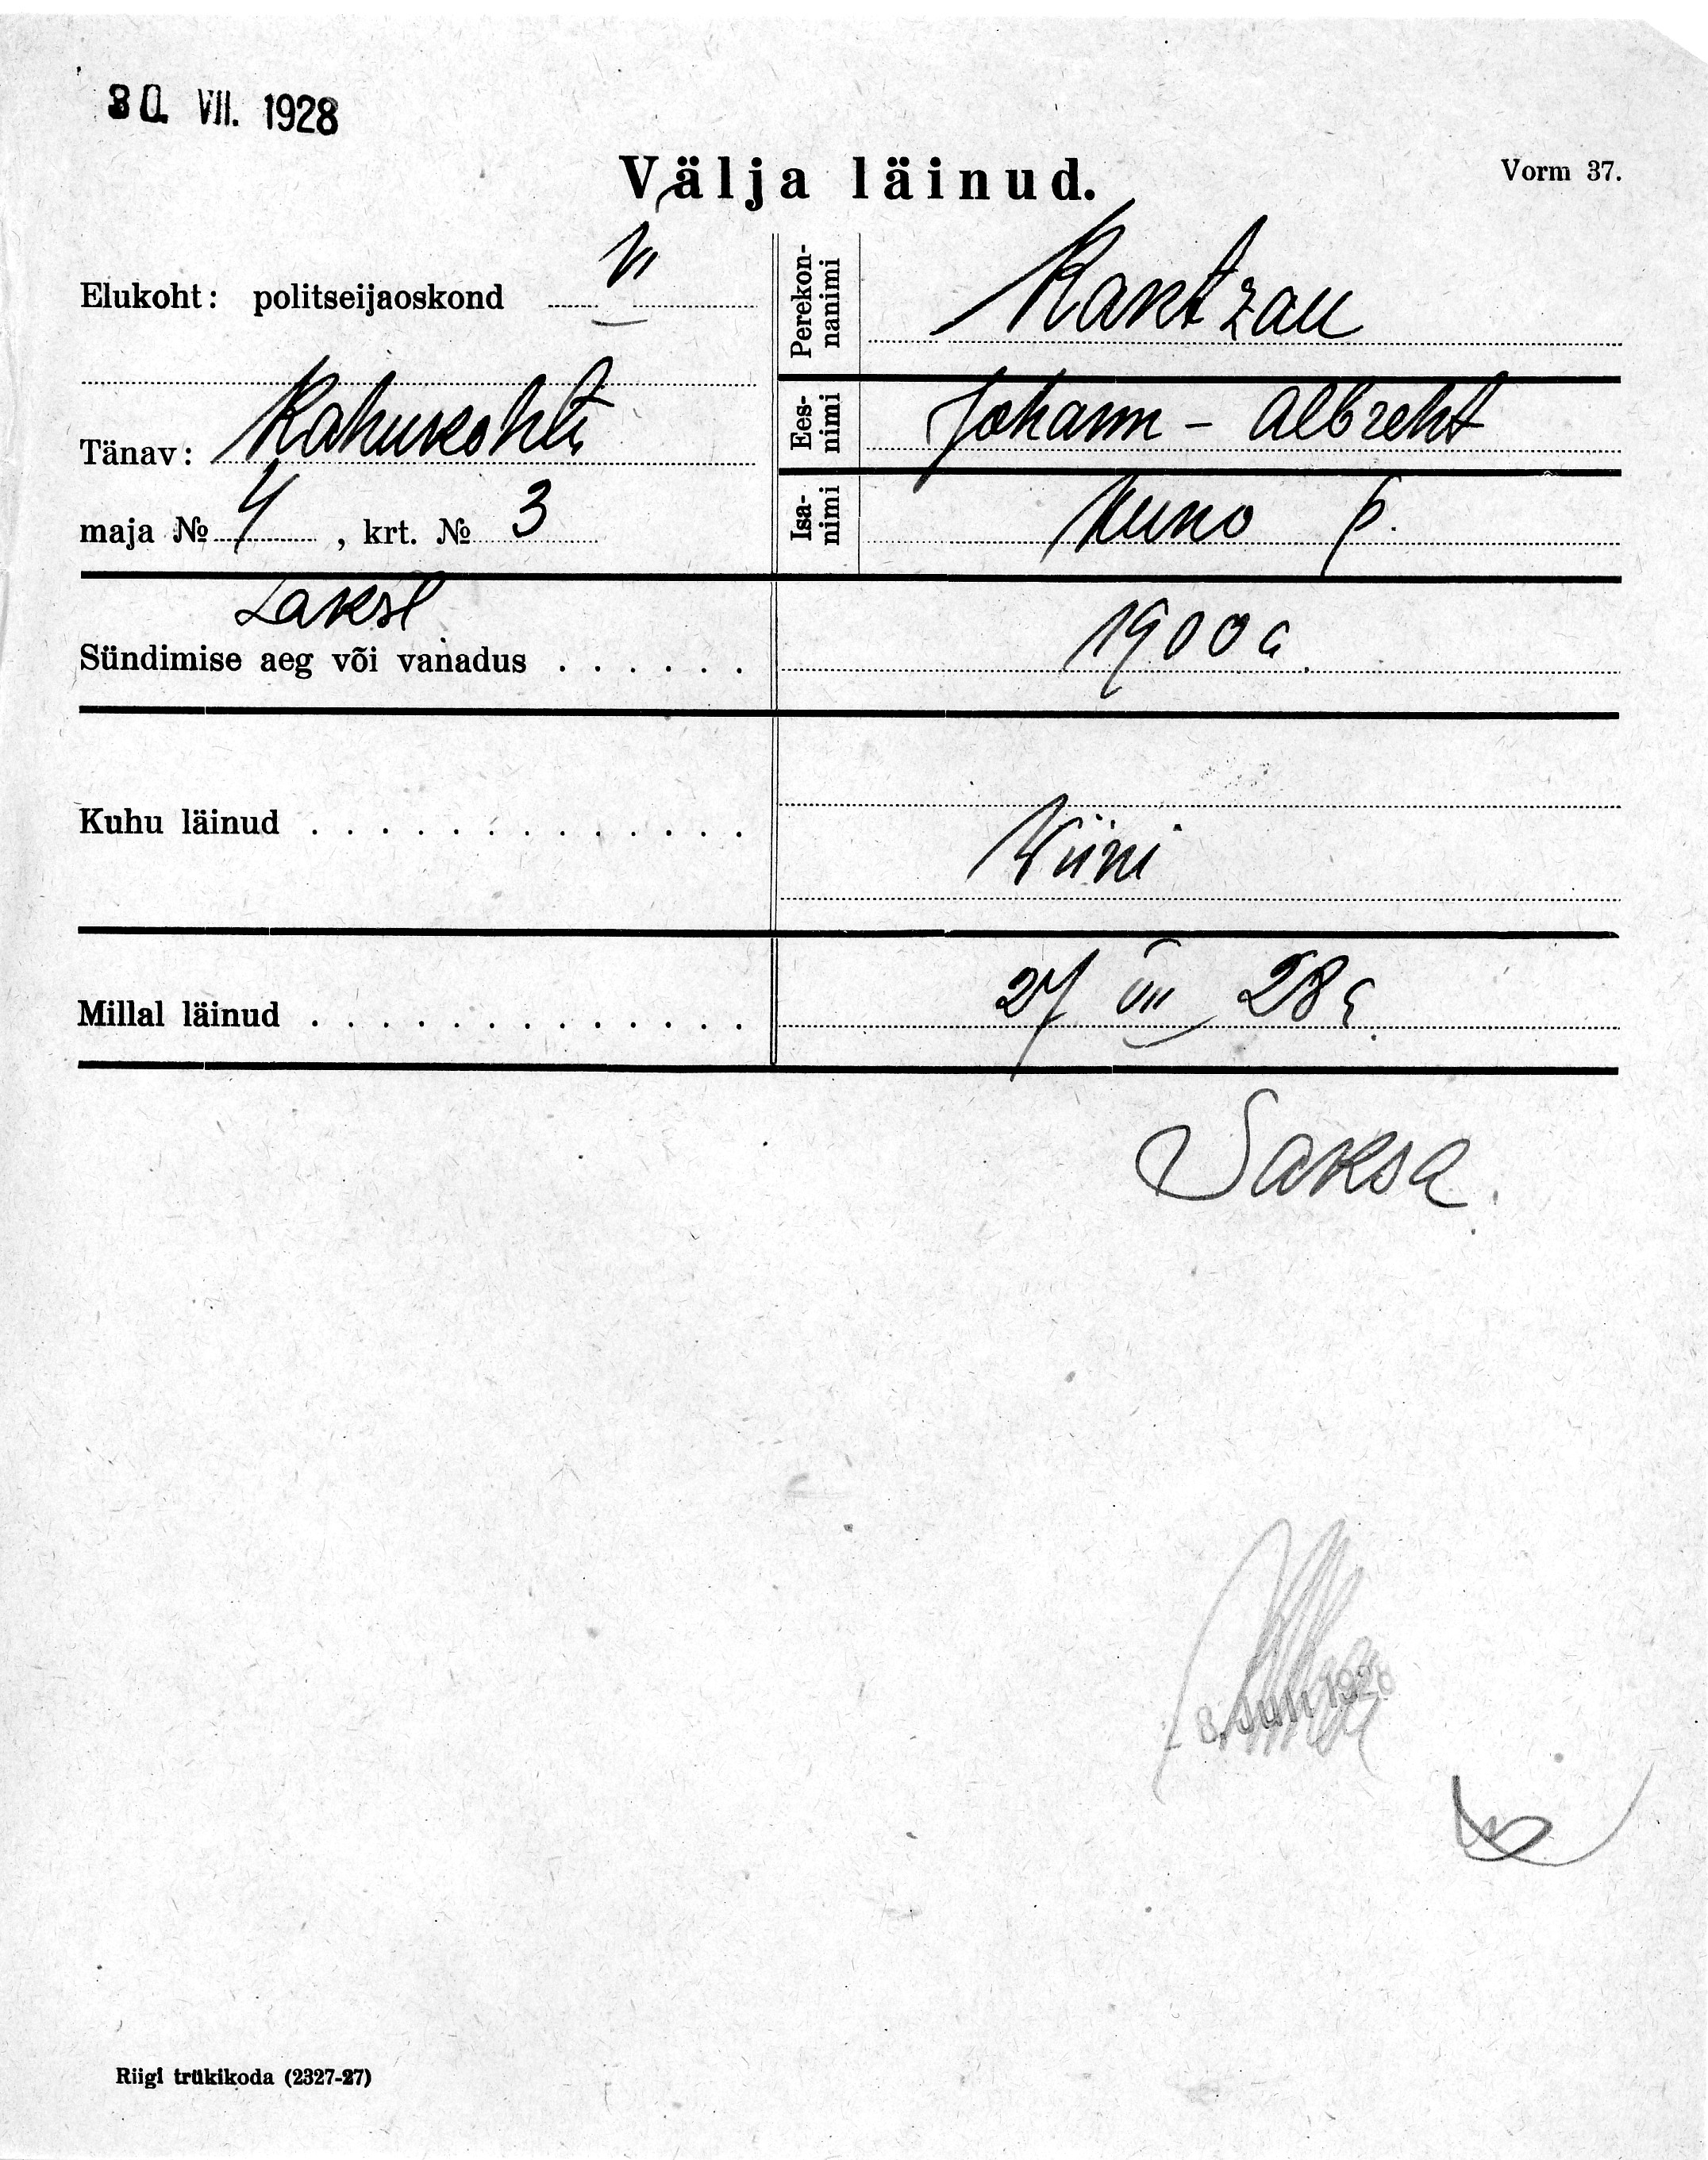 30. VII. 1928
Välja läinud.
Vorm 37.
Elukoht: politseijaoskond VI
Tänav: Rahukohtu
maja № 4, krt. № 3
Perekon-
nanimi
Rantzau
Ees-
nimi
Johann - Albreht
Isa-
nimi
Kuno p.
Sündimise aeg või vanadus . . . . . .
1900 a.
Kuhu läinud . . . . . . . . . . . . .
Viini
Millal läinud . . . . . . . . . . . . .
27 VII 28 a.
Saksa.
Riigi trükikoda (2327-27)